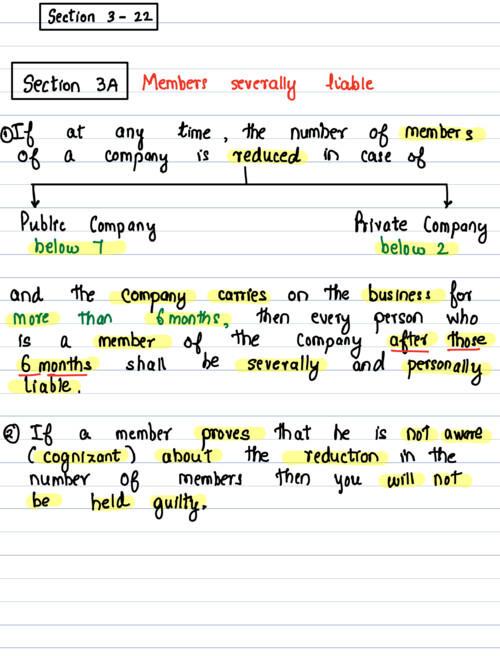 Section 3-22
Section 3A Members severally liable
① If at any time, the number of members
of a company is reduced in case of
Public Company Private Company
below 7 below 2
and the company carries on the business for
more than 6 months, then every person who
is a member of the company after those
6 months shall be severally and personally
liable.
② If a member proves that he is not aware
(cognizant) about the reduction in the
number of members then you will not
be held guilty.